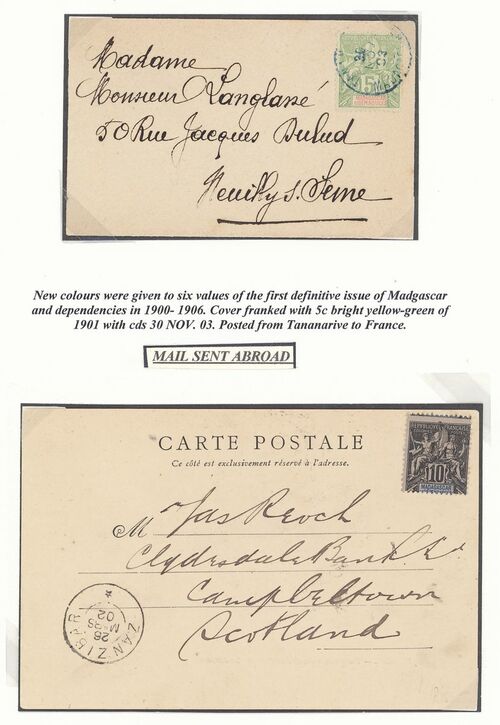 Madame
Monsieur Langlassé
50 Rue Jacques Dulud
Neuilly s. Seine
5
New colours were given to six values of the first definitive issue of Madgascar
and dependencies in 1900- 1906. Cover franked with 5c bright yellow-green of
1901 with cds 30 NOV. 03. Posted from Tananarive to France.
MAIL SENT ABROAD
CARTE POSTALE
Ce côté est exclusivement réservé à l'adresse.
REPUBLIQUE FRANÇAISE
10
M Jas Reoch
Clydesdale Bank Ld
Campbeltown
Scotland
ZANZIBAR
28
02